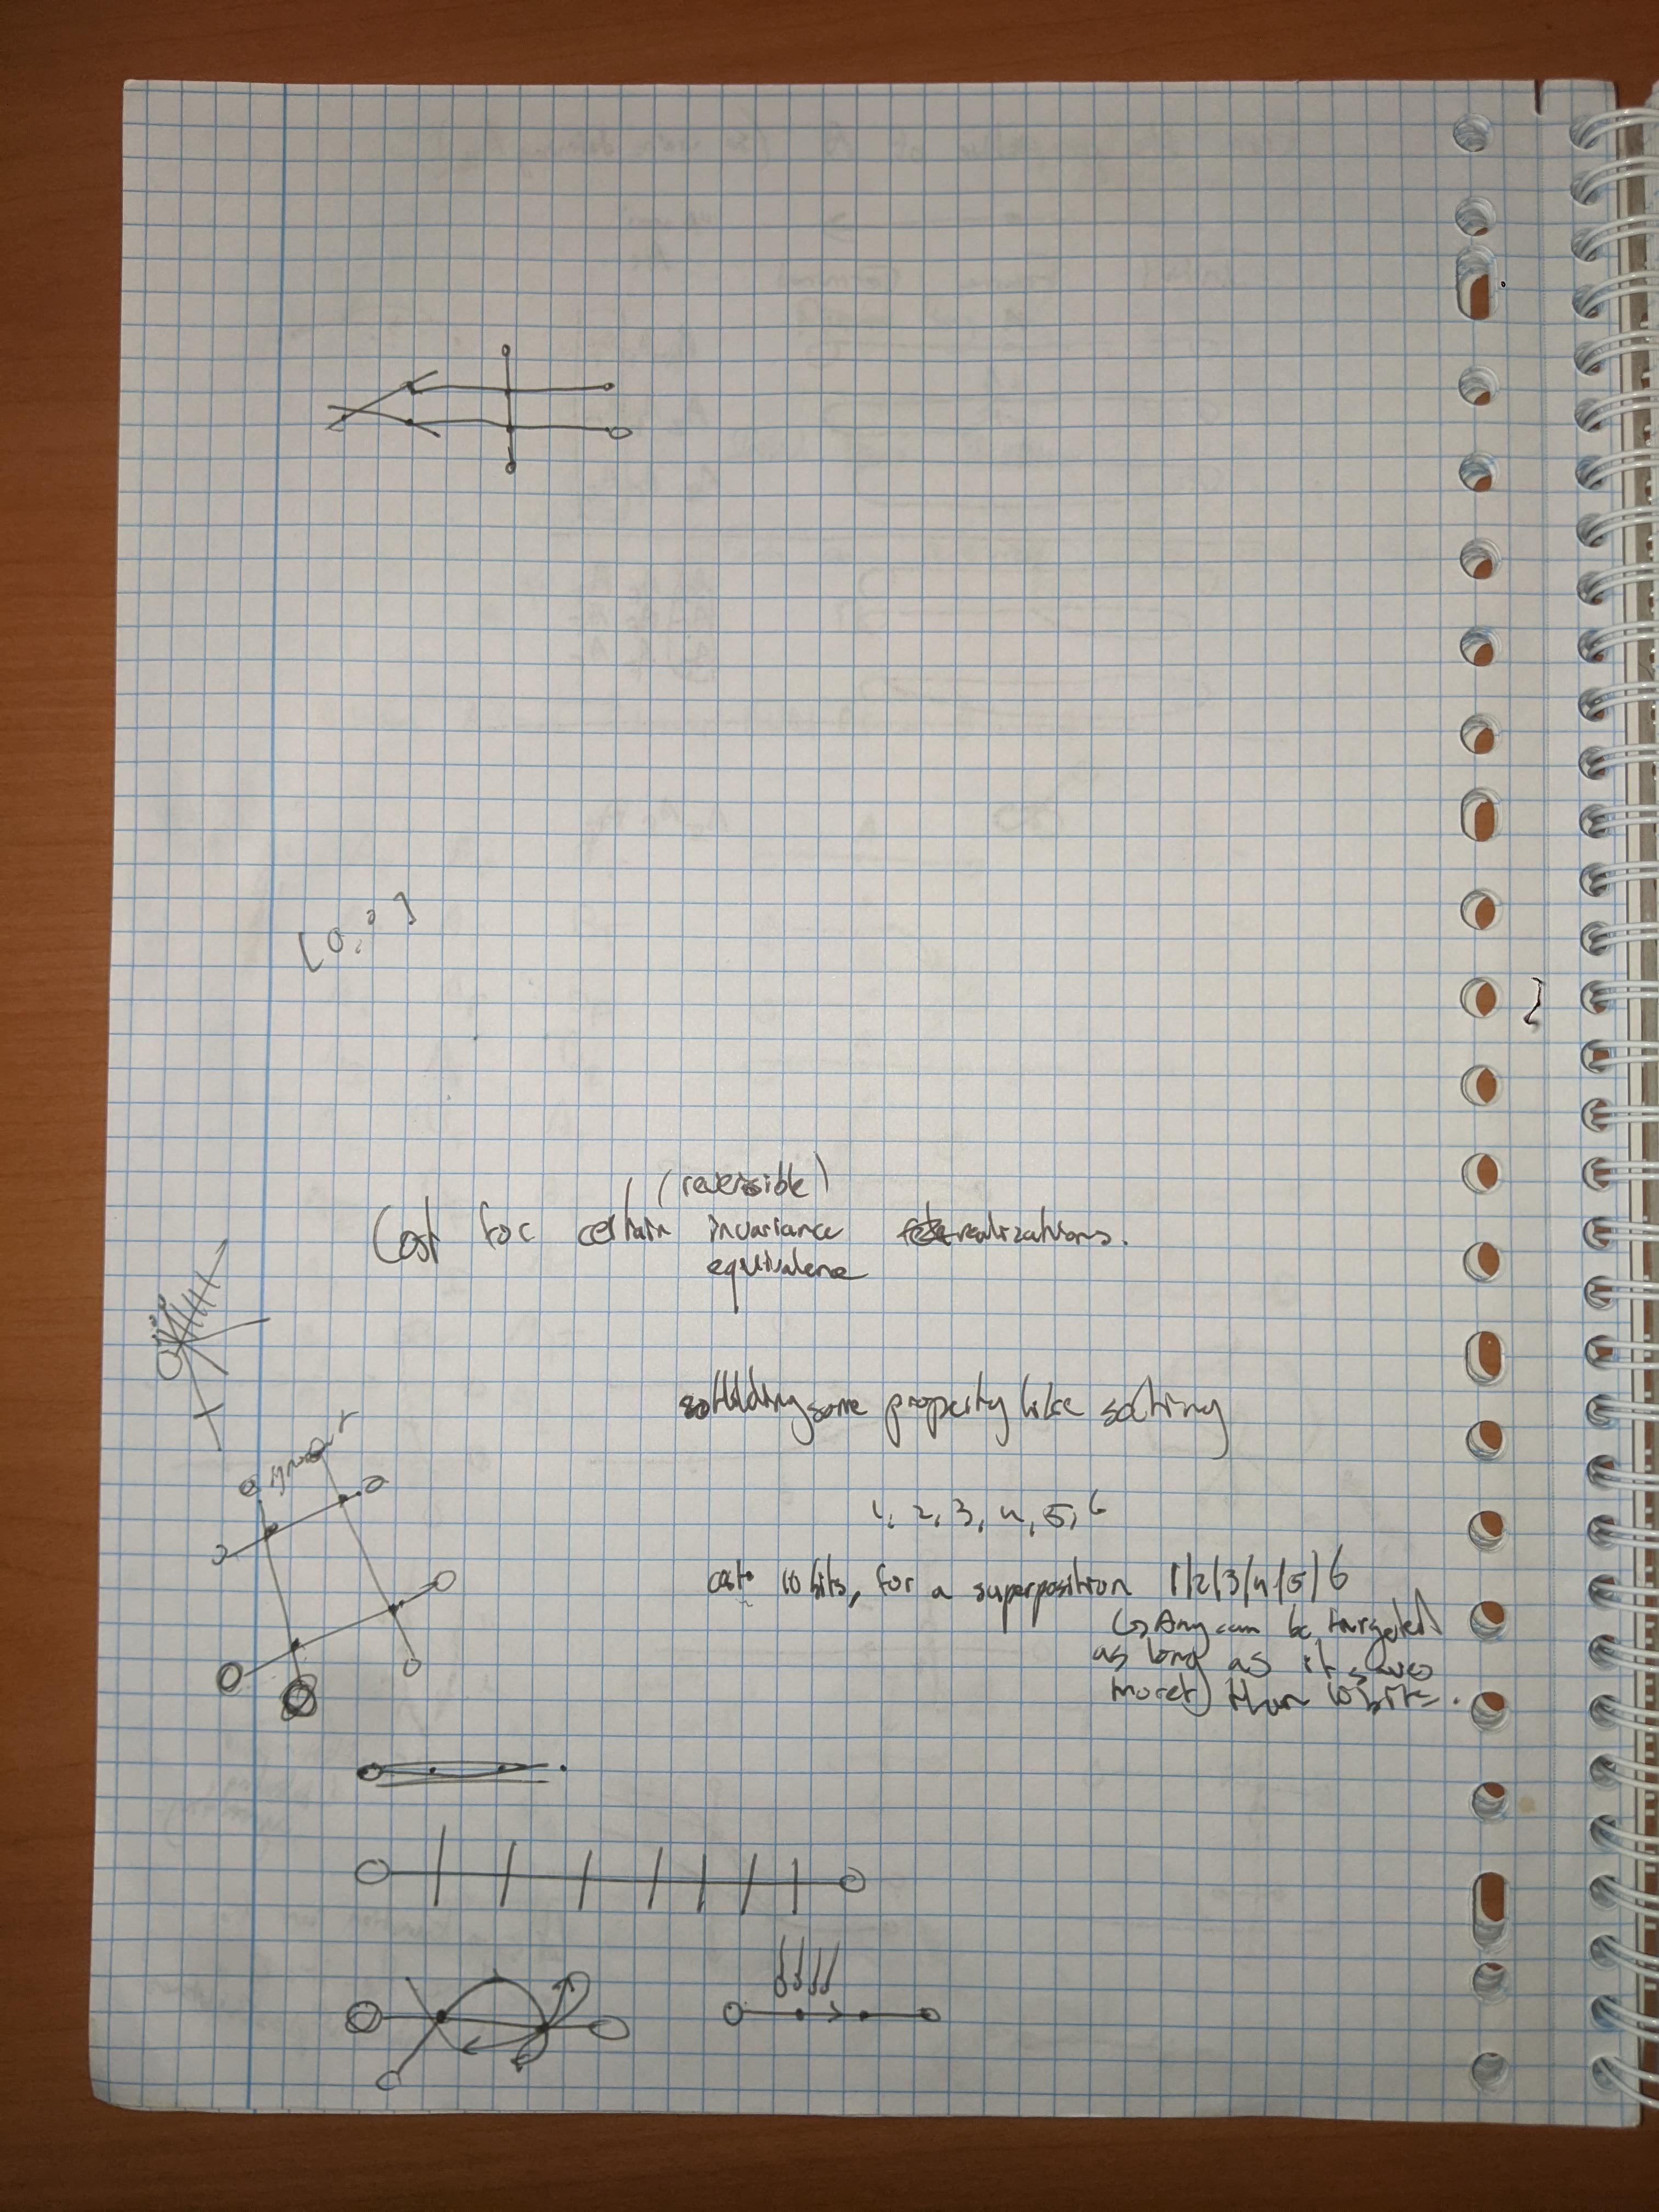 [0, 2]
(reversible)
Cost for certain invariance realizations.
equivalence
some property like
1, 2, 3, 4, 5, 6
cost 10 bits, for a superposition 1/2/3/4/5/6
↳ Any can be targeted
as long as it saves
more than 10 bits.
ignore